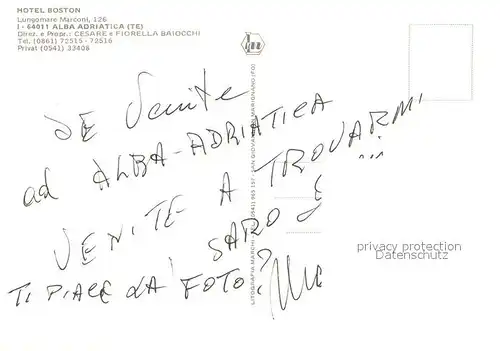 HOTEL BOSTON
Lungomare Marconi, 126
I - 64011 ALBA ADRIATICA (TE)
Direz. e Propr.: CESARE e FIORELLA BAIOCCHI
Tel. (0861) 72515 - 72516
Privat (0541) 33408
SE Venite
ad ALBA-ADRIATICA
VENITE A TROVARMI
...
SARO
TI PIACE LA FOTO?
LITOGRAFIA MARCHI (0541) 969.157 - SAN GIOVANNI MARIGNANO (FO)
privacy protection
Datenschutz